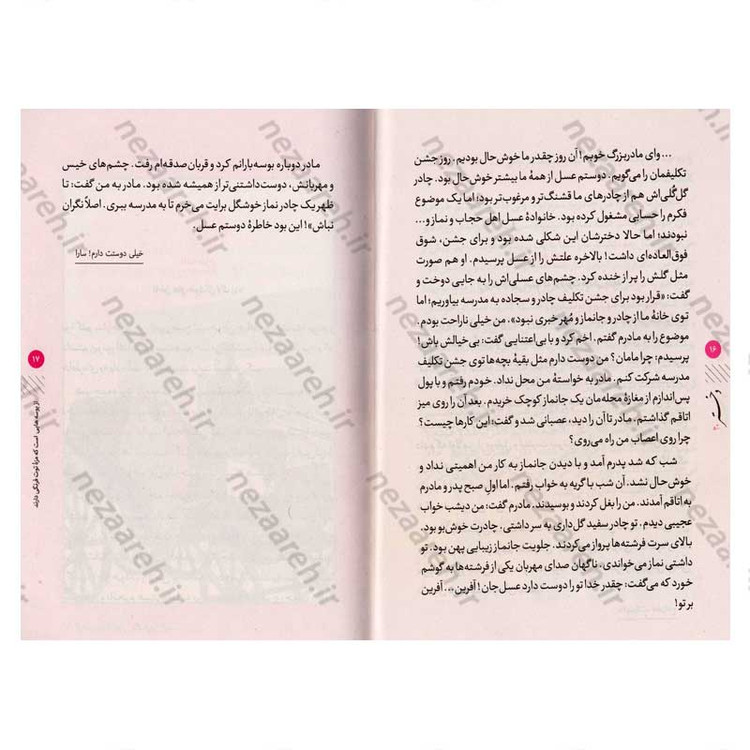 ... وای مادربزرگ خوبم! آن روز چقدر ما خوش‌حال بودیم. روز جشن
تکلیفمان را می‌گویم. دوستم عسل از همهٔ ما بیشتر خوش‌حال بود. چادر
گل‌گلی‌اش هم از چادرهای ما قشنگ‌تر و مرغوب‌تر بود؛ اما یک موضوع
فکرم را حسابی مشغول کرده بود. خانوادهٔ عسل اهل حجاب و نماز و...
نبودند؛ اما حالا دخترشان این شکلی شده بود و برای جشن، شوق
فوق‌العاده‌ای داشت! بالاخره علتش را از عسل پرسیدم. او هم صورت
مثل گلش را پر از خنده کرد. چشم‌های عسلی‌اش را به جایی دوخت و
گفت: «قرار بود برای جشن تکلیف چادر و سجاده به مدرسه بیاوریم؛ اما
توی خانهٔ ما از چادر و جانماز و مُهر خبری نبود». من خیلی ناراحت بودم.
موضوع را به مادرم گفتم. اخم کرد و با بی‌اعتنایی گفت: بی‌خیالش باش!
پرسیدم: چرا مامان؟ من دوست دارم مثل بقیهٔ بچه‌ها توی جشن تکلیف
مدرسه شرکت کنم. مادر به خواستهٔ من محل نداد. خودم رفتم و با پول
پس‌اندازم از مغازهٔ محله‌مان یک جانماز کوچک خریدم. بعد آن را روی میز
اتاقم گذاشتم. مادر تا آن را دید، عصبانی شد و گفت: این کارها چیست؟
چرا روی اعصاب من راه می‌روی؟
شب که شد پدرم آمد و با دیدن جانماز به کار من اهمیتی نداد و
خوش‌حال نشد. آن شب با گریه به خواب رفتم. اما اول صبح پدر و مادرم
به اتاقم آمدند. من را بغل کردند و بوسیدند. مادرم گفت: من دیشب خواب
عجیبی دیدم. تو چادر سفید گل‌داری به سر داشتی. چادرت خوش‌بو بود.
بالای سرت فرشته‌ها پرواز می‌کردند. جلویت جانماز زیبایی پهن بود. تو
داشتی نماز می‌خواندی، ناگهان صدای مهربان یکی از فرشته‌ها به گوشم
خورد که می‌گفت: چقدر خدا تو را دوست دارد عسل‌جان! آفرین... آفرین
بر تو!
۱۶
دختر
۲۰
مادر دوباره بوسه‌بارانم کرد و قربان صدقه‌ام رفت. چشم‌های خیس
و مهربانش، دوست‌داشتنی‌تر از همیشه شده بود. مادر به من گفت: تا
ظهر یک چادر نماز خوشگل برایت می‌خرم تا به مدرسه ببری. اصلاً نگران
نباش»! این بود خاطرهٔ دوستم عسل.
خیلی دوستت دارم! سارا
۱۷
از بوسه‌هایی است که مزهٔ توت فرنگی دارند
nezaareh.ir
nezaareh.ir
nezaareh.ir
nezaareh.ir
nezaareh.ir
nezaareh.ir
nezaareh.ir
nezaareh.ir